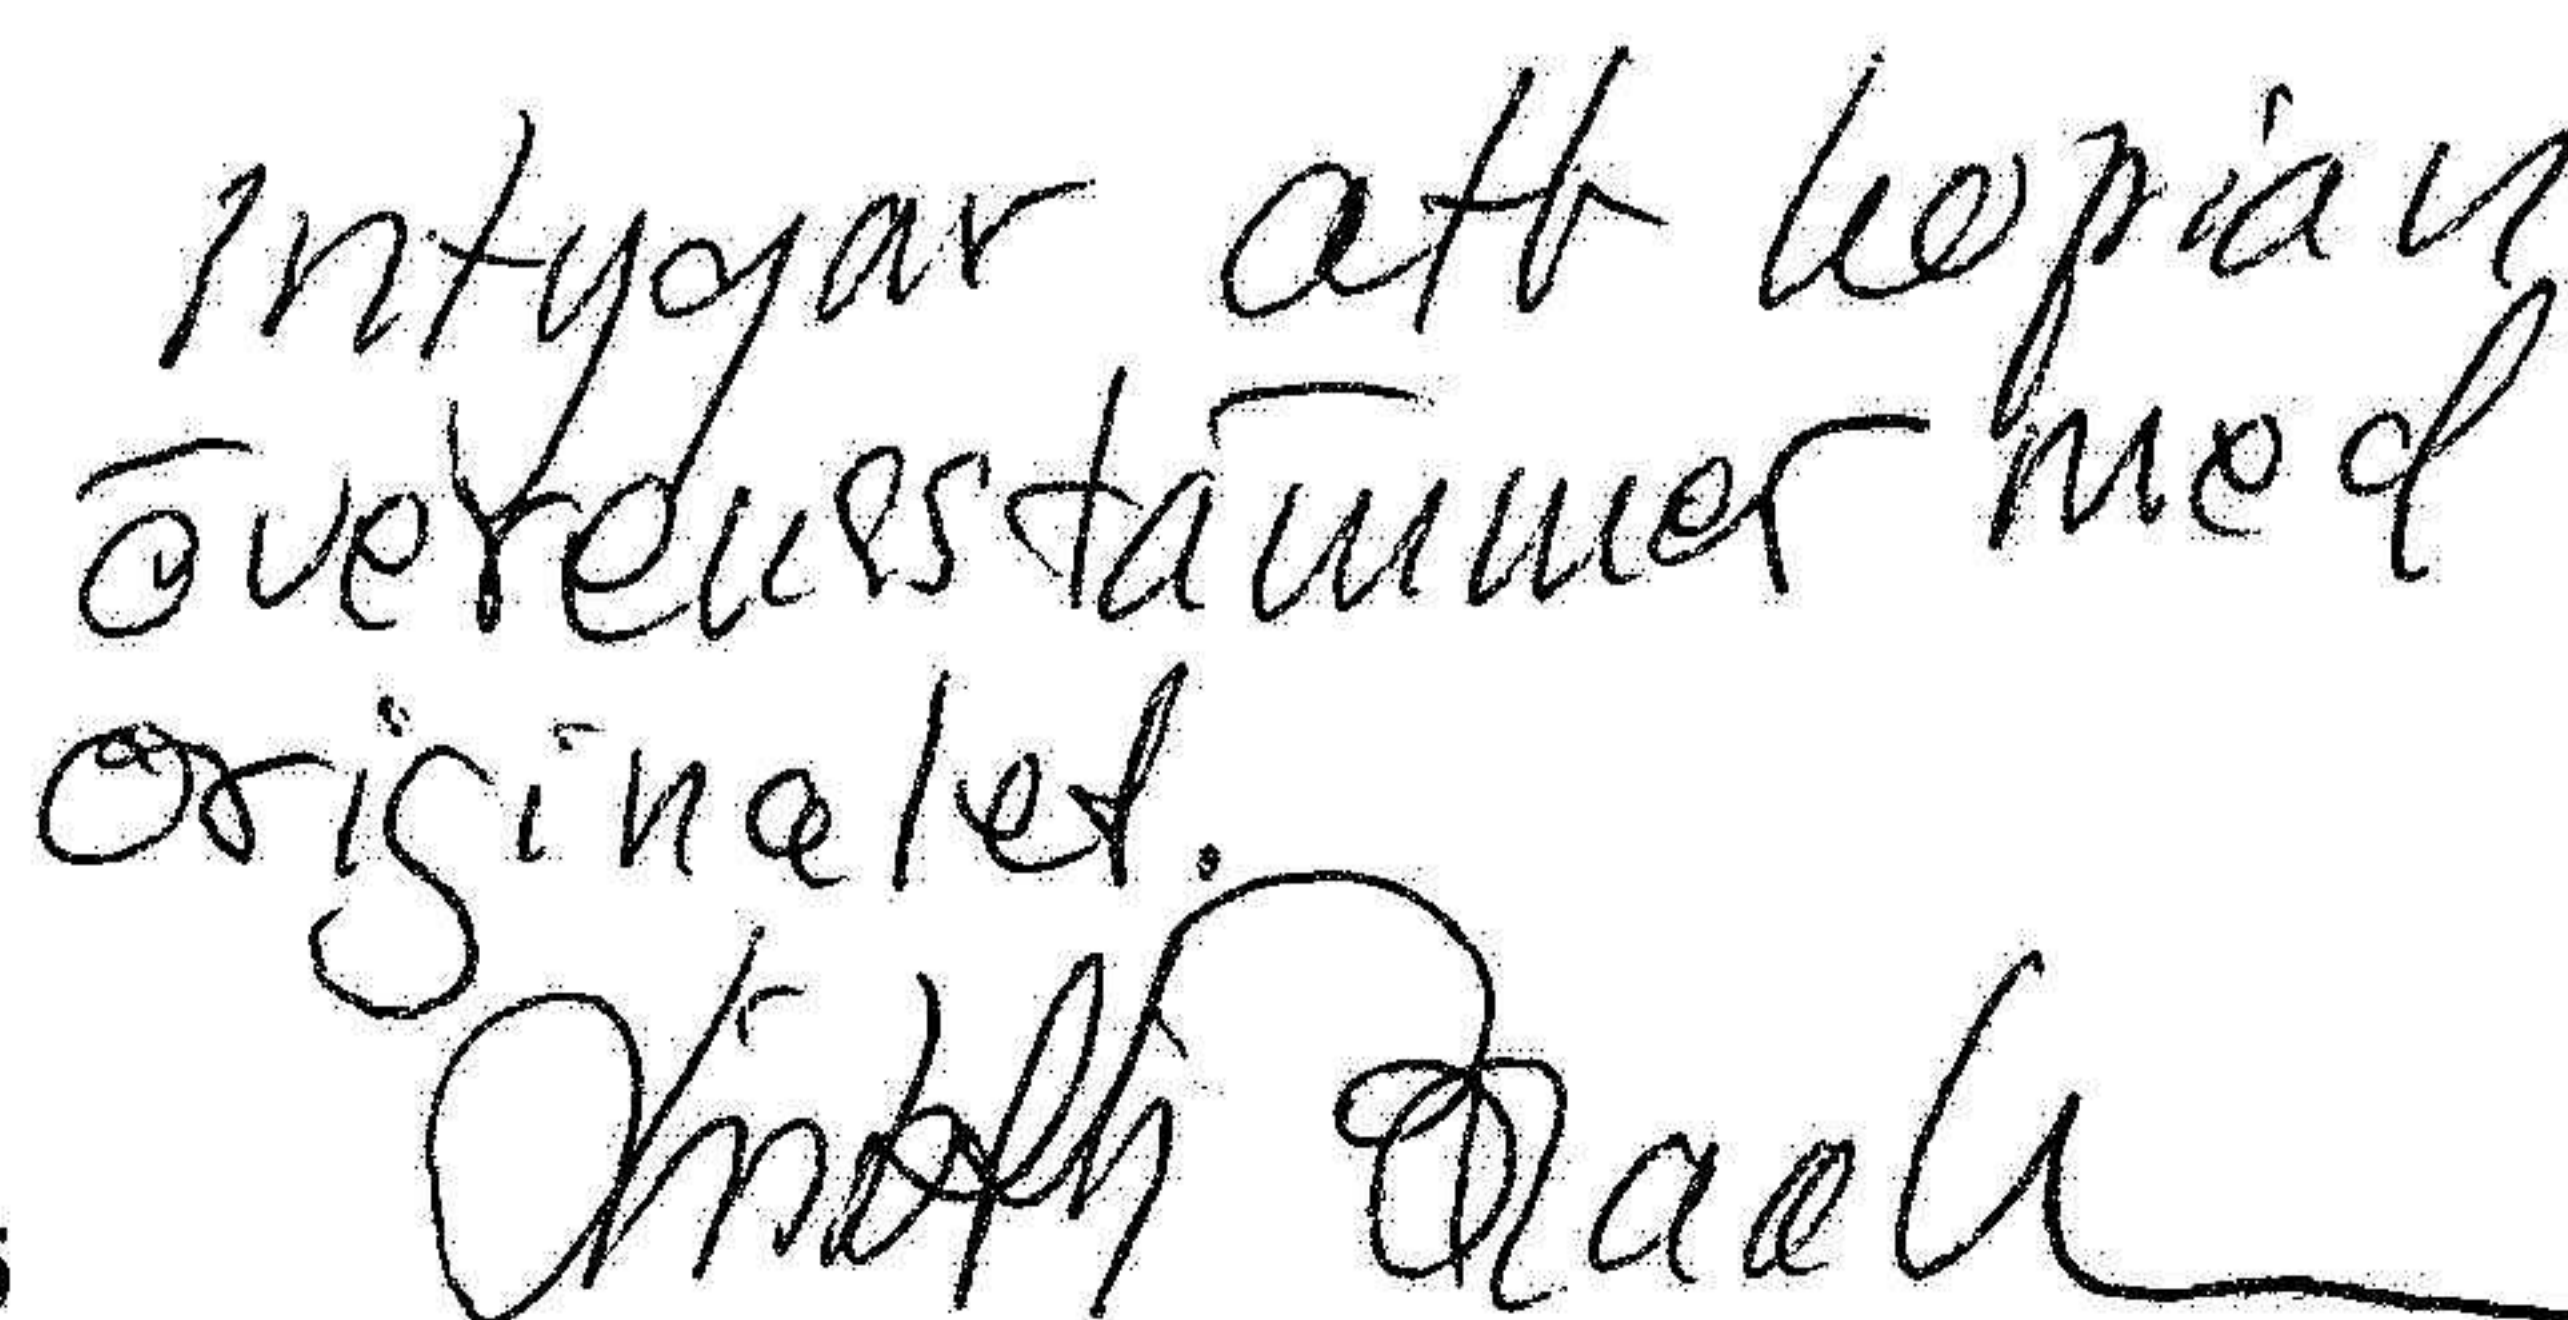 Intygar att kopian
överensstämmer med
originalet.